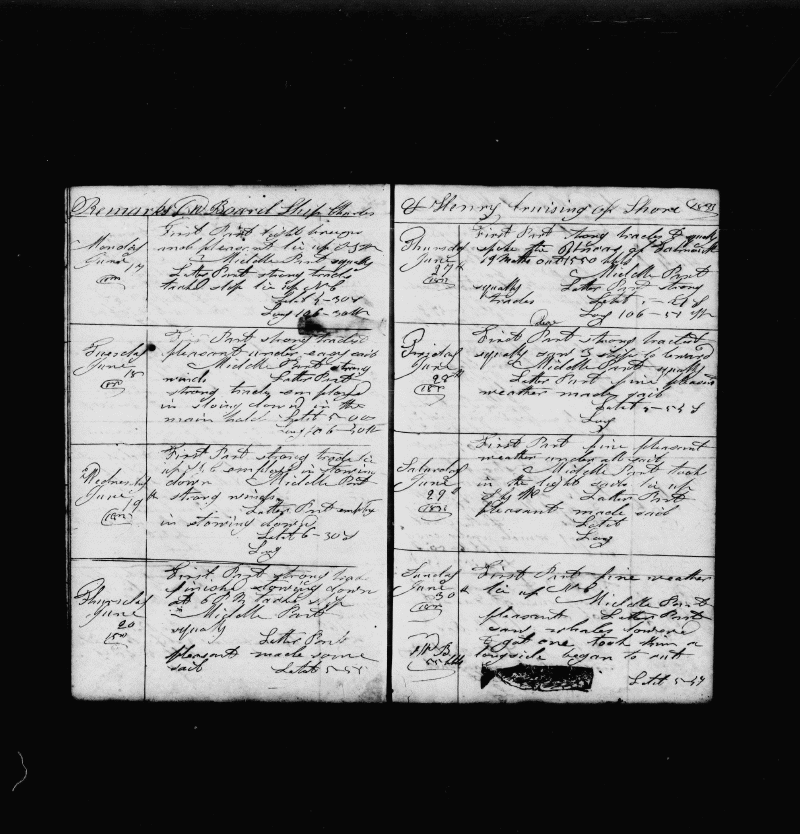 Remarks On Board Ship Charles
Monday
June
17
First Part light breezes
and pleasant lie up
Middle Part squally
Latter Part strong trades
tacked ship lie up N E
Latit 5-30 S
Long 106-30 W
Tuesday
June
18
First Part strong trades
pleasant under easy sail
Middle Part strong
winds Latter Part
strong trades employed
in stowing down in the
main hold Latit 5-00
Long 106-30 W
Wednesday
June
19th
First Part strong trades lie
up employed in stowing
down Middle Part
strong winds
Latter Part employ
in stowing down
Latit 6-30 S
Long
Thursday
June
20
First Part strong trades
finished stowing down
at 6 P M
Middle Part
squally
Latter Part
pleasant made some
sail Latit 5-55
& Henry Cruising of Shore
Thursday
June
27th
First Part strong trades & squally
spoke the
19 months out 1550 bbls
Middle Part
squally Latter Part strong
trades Latit
Long 106-57 W
Friday
June
28th
First Part strong trades
squally saw 3 ships to leward
Middle Part squally
Latter Part fine pleasant
weather made sail
Latit 5-55 S
Long
Saturday
June
29th
First Part fine pleasant
weather under all sail
Middle Part took
in the light sails lie up
S by W Latter Part
pleasant made sail
Latit
Long
Sunday
June
30th
First Part fine weather
lie up
Middle Part
pleasant Latter Part
saw whales lowered
& got one took him a
longside began to cut
Latit 5-57